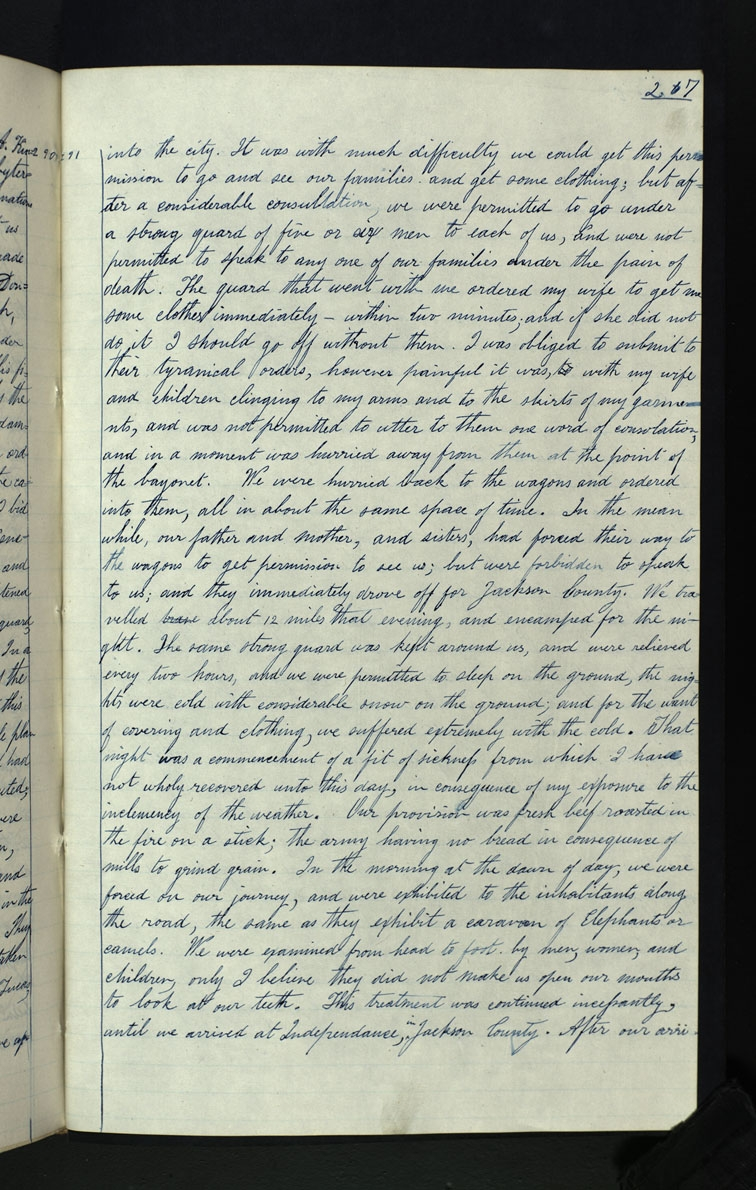 267
into the city. It was with much difficulty we could get this per=
mission to go and see our families and get some clothing; but af=
ter a considerable consultation, we were permitted to go under
a strong guard of five or six men to each of us, and were not
permitted to speak to any one of our families under the pain of
death. The guard that went with me ordered my wife to get me
some clothes immediately – within two minutes; and if she did not
do it I should go off without them. I was obliged to submit to
their tyranical orders, however painful it was, with my wife
and children clinging to my arms and to the skirts of my garme=
nts, and was not permitted to utter to them one word of consolation,
and in a moment was hurried away from them at the point of
the bayonet. We were hurried back to the wagons and ordered
into them, all in about the same space of time. In the mean
while, our father and mother, and sisters, had forced their way to
the wagons to get permission to see us; but were forbidden to speak
to us; and they immediately drove off for Jackson County. We tra
velled about 12 miles that evening, and encamped for the ni-
ght. The same strong guard was kept around us, and were relieved
every two hours, and we were permitted to sleep on the ground, the nig-
hts were cold with considerable snow on the ground; and for the want
of covering and clothing, we suffered extremely with the cold. That
night was a commencement of a fit of sickness from which I have
not wholy recovered unto this day, in consequence of my exposure to the
inclemency of the weather. Our provision was fresh beef roasted in
the fire on a stick; the army having no bread in consequence of
mills to grind grain. In the morning at the dawn of day, we were
forced on our journey, and were exhibited to the inhabitants along
the road, the same as they exhibit a caravan of Elephants or
camels. We were examined from head to foot. by men, women, and
children, only I believe they did not make us open our mouths
to look at our teeth. This treatment was continued incessantly,
until we arrived at Independance, in Jackson County. After our arri-